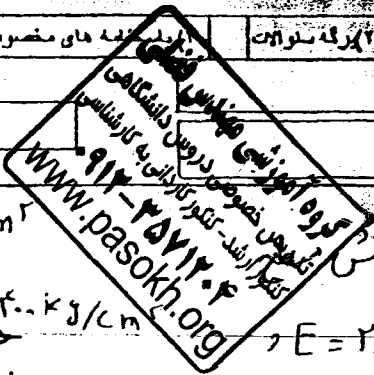 برگه سوالات
گروه آموزشی مهندس فضلی
تدریس خصوصی دروس دانشگاهی
کنکور ارشد - کنکور کاردانی به کارشناسی
۰۹۱۲-۳۵۷۱۲۰۴
www.pasokh.org
kg/cm
, E = ۲